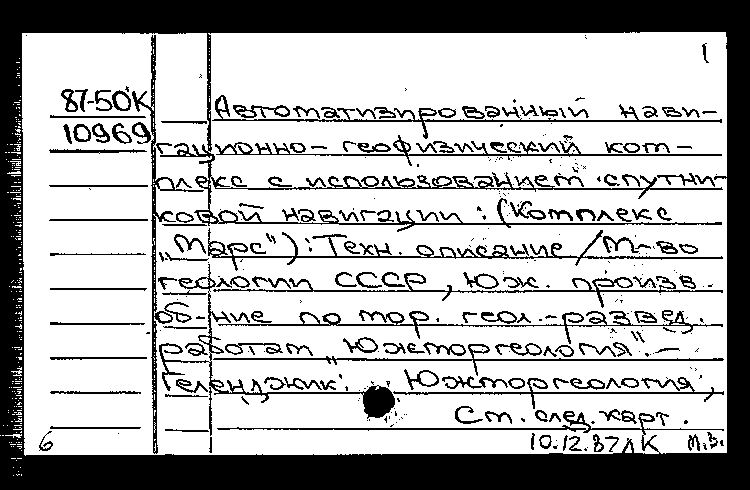 1
87-50К
10969
Автоматизированный нави-
гационно-геофизический ком-
плекс с использованием спутни-
ковой навигации : (Комплекс
„Марс") : Техн. описание / М-во
геологии СССР, Юж. произв.
об-ние по мор. геол.-развед.
работам „Южморгеология". -
Геленджик : Южморгеология,
См. след. карт.
6
10.12.87 ЛК М.В.